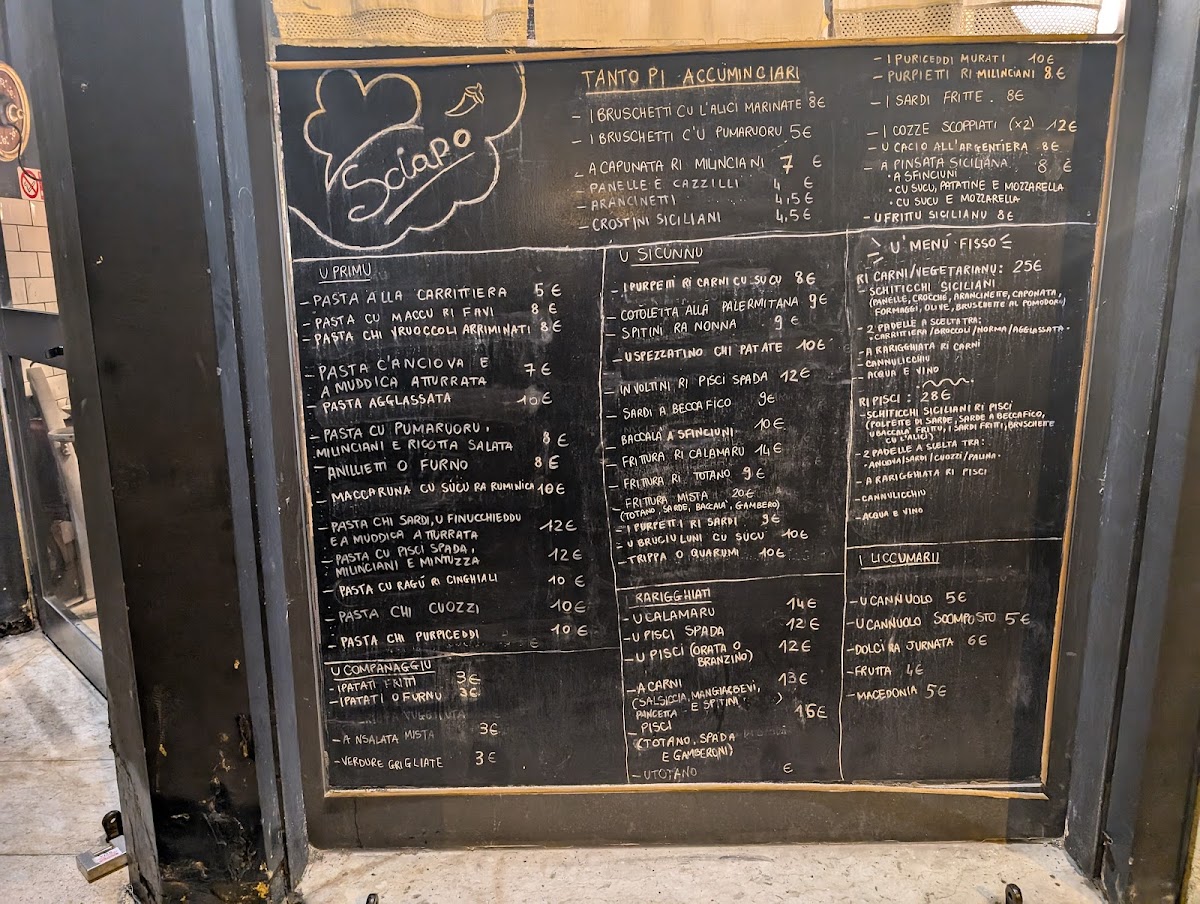 Sciapo
TANTO PI ACCUMINCIARI
- I BRUSCHETTI CU L'ALICI MARINATE 8€
- I BRUSCHETTI C'U PUMARUORU 5€
- A CAPUNATA RI MILINCIANI 7 €
- PANELLE E CAZZILLI 4 €
- ARANCINETTI 4,5€
- CROSTINI SICILIANI 4,5€
- I PURICEDDI MURATI 10€
- PURPIETTI RI MILINCIANI 8€
- I SARDI FRITTE. 8€
- I COZZE SCOPPIATI (x2) 12€
- U CACIO ALL'ARGENTIERA 8€
- A PINSATA SICILIANA 8 €
• A SFINCIUNI
• CU SUCU, PATATINE E MOZZARELLA
• CU SUCU E MOZZARELLA
- U FRITTU SICILIANU 8€
U PRIMU
- PASTA A'LLA CARRITTIERA 5 €
- PASTA CU MACCU RI FAVI 8 €
- PASTA CHI VRUOCCOLI ARRIMINATI 8€
- PASTA C'ANCIOVA E 7€
A MUDDICA ATTURRATA
- PASTA AGGLASSATA 10€
- PASTA CU PUMARUORU,
MILINCIANI E RICOTTA SALATA 8 €
- ANILLIETTI O FURNO 8€
- MACCARUNA CU SUCU RA RUMINICA 10€
- PASTA CHI SARDI, U FINUCCHIEDDU 12€
E A MUDDICA ATTURRATA
- PASTA CU PISCI SPADA, 12€
MILINCIANI E MINTUZZA
- PASTA CU RAGÚ RI CINGHIALI 10 €
- PASTA CHI CUOZZI 10€
- PASTA CHI PURPICEDDI 10 €
€
U COMPANAGGIU
- I PATATI FRITTI 3€
- I PATATI O FURNU 3€
- A NSALATA MISTA 3€
- VERDURE GRIGLIATE 3€
U SICUNNU
- I PURPETTI RI CARNI CU SUCU 8€
- COTOLETTA ALLA PALERMITANA 9€
- SPITINI RA NONNA 9 €
- U SPEZZATINO CHI PATATE 10€
- INVOLTINI RI PISCI SPADA 12€
- SARDI A BECCAFICO 9€
- BACCALÀ A SFINCIUNI 10€
- FRITTURA RI CALAMARU 14€
- FRITTURA RI TOTANO 9€
- FRITTURA MISTA 20€
(TOTANO, SARDE, BACCALA', GAMBERO)
- I PURPETTI RI SARDI 9€
- U BRUCIULUNI CU SUCU 10€
- TRIPPA O QUARUMI 10€
RARIGGHIATI
- U CALAMARU 14€
- U PISCI SPADA 12€
- U PISCI (ORATA O 12€
BRANZINO)
- A CARNI 13€
(SALSICCIA, MANGIAEBEVI,
PANCETTA E SPITINI )
- PISCI 16€
(TOTANO, SPADA
E GAMBERONI)
- U TOTANO €
U' MENÚ FISSO
RI CARNI/VEGETARIANU: 25€
- SCHITICCHI SICILIANI
(PANELLE, CROCCHÉ, ARANCINETTE, CAPONATA,
FORMAGGI, OLIVE, BRUSCHETTE AL POMODORO)
- 2 PADELLE A SCELTA TRA:
• CARRITTIERA/BROCCOLI/NORMA/AGGLASSATA.
- A RARIGGHIATA RI CARNI
- CANNULICCHIU
- ACQUA E VINO
RI PISCI: 28€
- SCHITICCHI SICILIANI RI PISCI
(POLPETTE DI SARDE, SARDE A BECCAFICO,
U BACCALA' FRITTU, I SARDI FRITI, BRUSCHETTE
CU L'ALICI)
- 2 PADELLE A SCELTA TRA:
• ANCIOVA/SARDI/CUOZZI/PALINA.
- A RARIGGHIATA RI PISCI
- CANNULICCHIU
- ACQUA E VINO
I LICCUMARII
- U CANNUOLO 5€
- U CANNUOLO SCOMPOSTO 5€
- DOLCI RA JURNATA 6€
- FRUTTA 4€
- MACEDONIA 5€